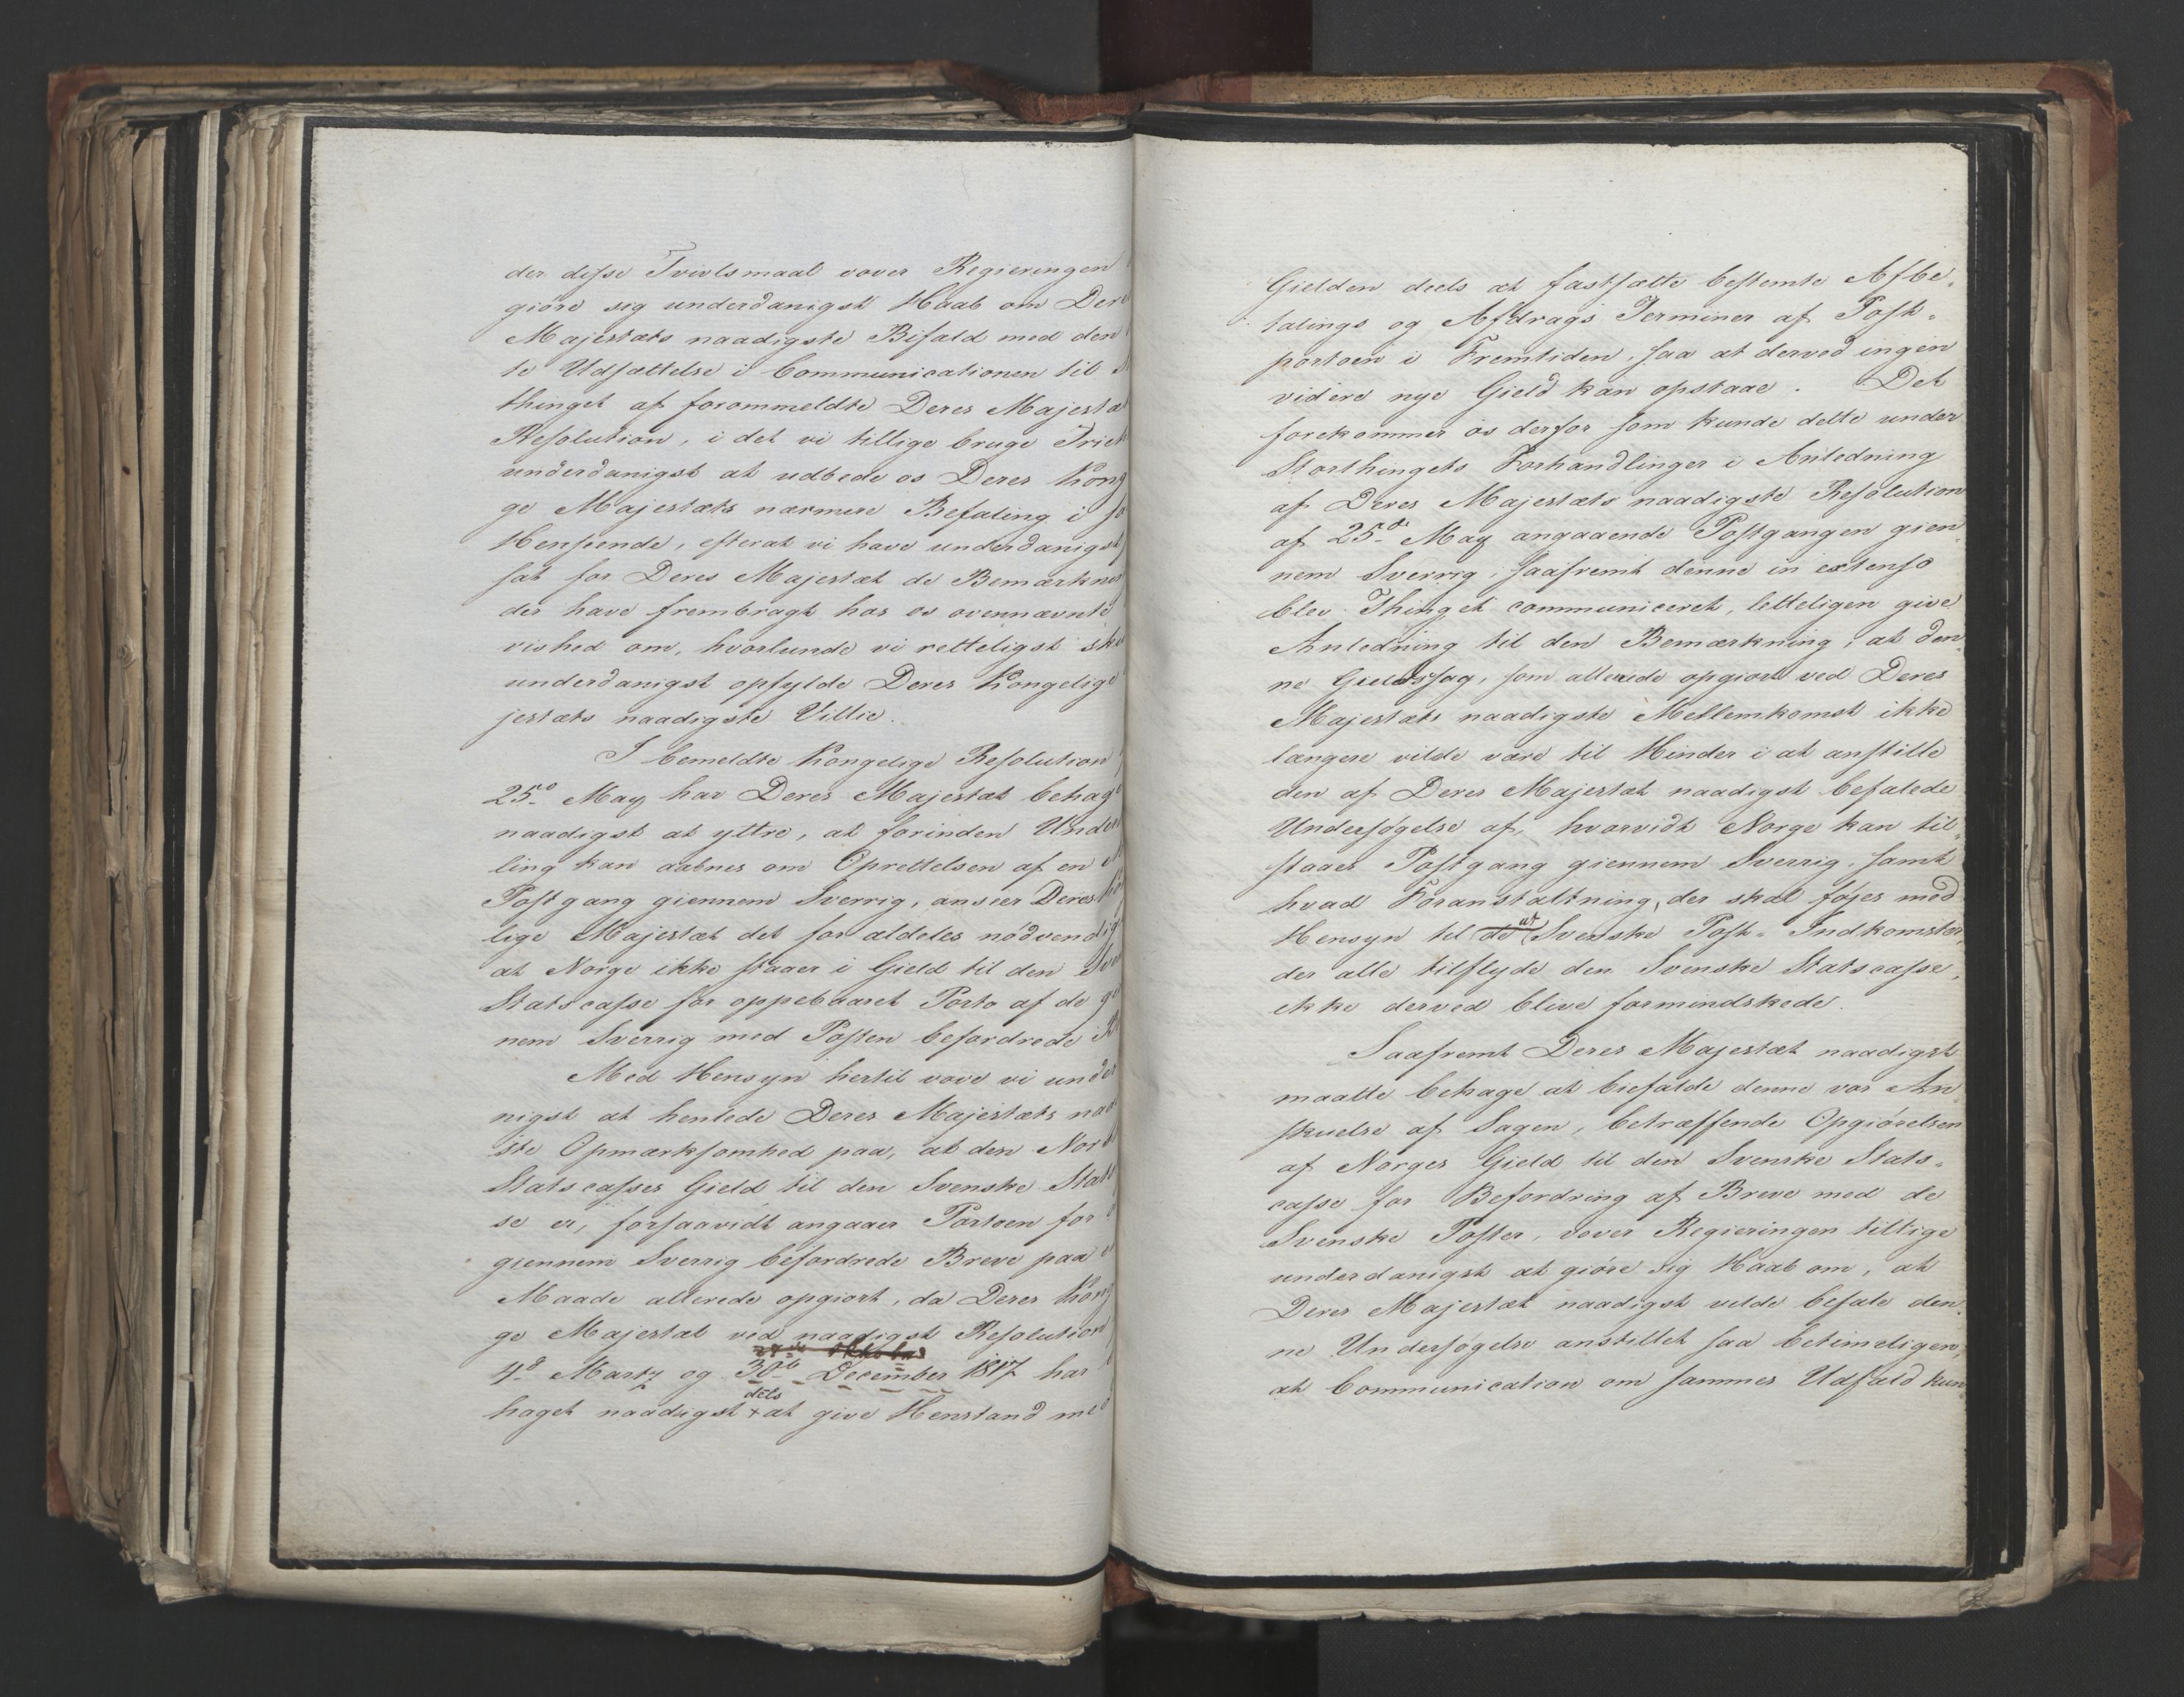 der disse Tvivlsmaal vover Regieringen
giöre sig underdanigst Haab om Dere
Majestæts naadigste Bifald med den
te Udsættelse i Communicationen til
thinget af forommeldte Deres Majestæ
Resolution, i det vi tillige bruge Frieh
underdanigst at udbede os Deres Kong
ge Majestæts nærmere Befaling i
Henseende, efterat vi have underdanigst
sat for Deres Majestæt de Bemærkne
der have frembragt hos os ovennævnte
vished om, hvorlunde vi retteligst ske
underdanigst opfylde Deres Kongelige
jestæts naadigste Villie.
I bemeldte Kongelige Resolution
25de May har Deres Majestæt behag
naadigst at yttre, at forinden Under
ling kan aabnes om Oprettelsen af en
Postgang giennem Sverrig, anseer Deres Kon
lige Majestæt det for aldeles nödvendig
at Norge ikke staaer i Gield til den Sven
Statscasse for oppebaaret Porto af de gi
nem Sverrig med Posten befordrede
Med Hensyn hertil vove vi under
nigst at henlede Deres Majestæts naa
ste Opmærksomhed paa, at den Nor
Statscasses Gield til den Svenske Stats
se er, forsaavidt angaaer Portoen for
giennem Sverrig befordrede Breve paa
Maade allerede opgiort, da Deres Kong
ge Majestæt ved naadigst Resolution
4de Marts og 30te December 1817 har
haget naadigst deels at give Henstand me
Gielden deels at fastsætte bestemte Afbe-
talings og Afdrags Terminer af Post-
portoen i Fremtiden, saa at derved ingen
videre nye Gield kan opstaae. Det
forekommer os derfor som kunde dette under
Storthingets Forhandlinger i Anledning
af Deres Majestæts naadigste Resolution
af 25de May angaaende Postgangen gien-
nem Sverrig, saafremt denne in extenso
blev Thinget communiceret, letteligen give
Anledning til den Bemærkning, at den-
ne Gieldssag, som allerede opgiort ved Deres
Majestæts naadigste Mellemkomst ikke
længere vilde være til Hinder i at anstille
den af Deres Majestæt naadigst befalede
Undersøgelse af, hvorvidt Norge kan til-
staaes Postgang giennem Sverrig, samt
hvad Foranstaltning, der skal føjes med
Hensyn til de at Svenske Post-Indkomster,
der alle tilflyde den Svenske Statscasse,
ikke derved blive formindskede.
Saafremt Deres Majestæt naadigst
maatte behage at biefalde denne vor An-
skuelse af Sagen, betræffende Opgiörelsen
af Norges Gield til den Svenske Stats-
casse for Befordring af Breve med de
Svenske Poster, vover Regieringen tillige
underdanigst at giöre sig Haab om, at
Deres Majestæt naadigst vilde befale den-
ne Undersøgelse anstillet saa betimeligen,
at Communication om sammes Udfald kun-